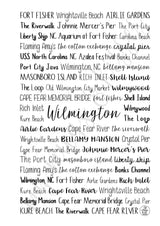 FORT FISHER Wrightsville Beach AIRLIE GARDENS
The Riverwalk Johnnie Mercer's Pier The Port City
Liberty Ship NC Aquarium at Fort Fisher Carolina Beach
Flaming Amy's the cotton exchange crystal pier
USS North Carolina NC Azalea Festival Banks Channel
Port City Java Wilmington, NC bellamy mansion
MASONBORO ISLAND RICH INLET Shell Island
The Loop Old Wilmington City Market Wilmywood
CAPE FEAR MEMORIAL BRIDGE fort fisher Shell Island
Rich Inlet
Wilmington
Wilmywood
The Loop
Airlie Gardens Cape Fear River the riverwalk
Wrightsville Beach BELLAMY MANSION Crystal Pier
Cape Fear Memorial Bridge Johnnie Mercer's Pier
The Port City masonboro island liberty ship
Flaming Amy's the cotton exchange Banks Channel
Wilmington, NC Fort Fisher Airlie Gardens Rich Inlet
KURE BEACH Cape Fear River Wrightsville Beach
Bellamy Mansion Cape Fear Memorial Bridge Crystal Pier
KURE BEACH The Riverwalk CAPE FEAR RIVER